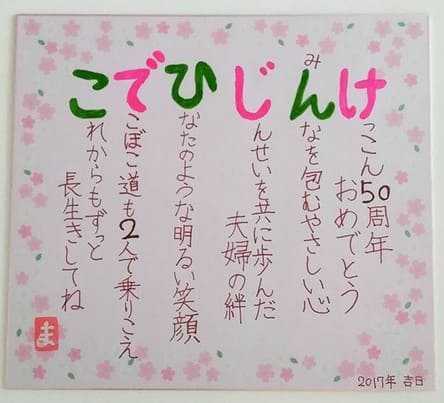 けっこん50周年
おめでとう
みんなを包むやさしい心
じんせいを共に歩んだ
夫婦の絆
ひなたのような明るい笑顔
でこぼこ道も2人で乗りこえ
これからもずっと
長生きしてね
ま
2017年 吉日